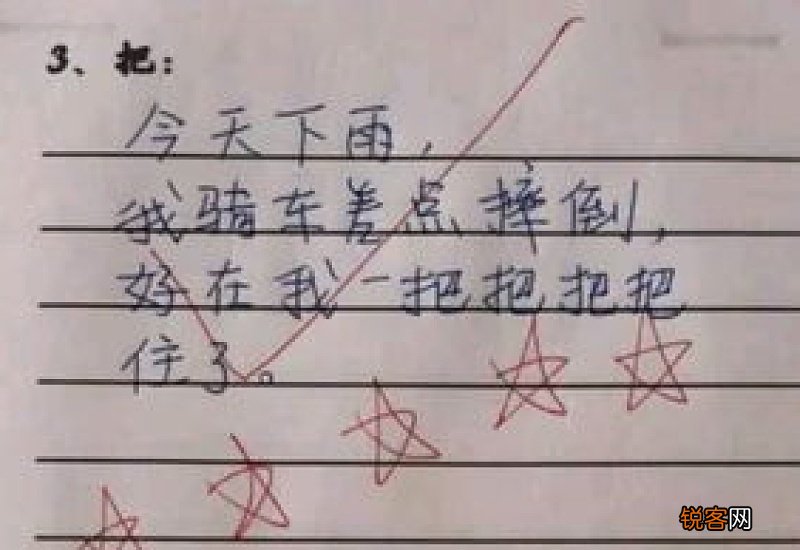 3、把：
今天下雨，
我骑车差点摔倒，
好在我一把把把把
住了。
锐客网